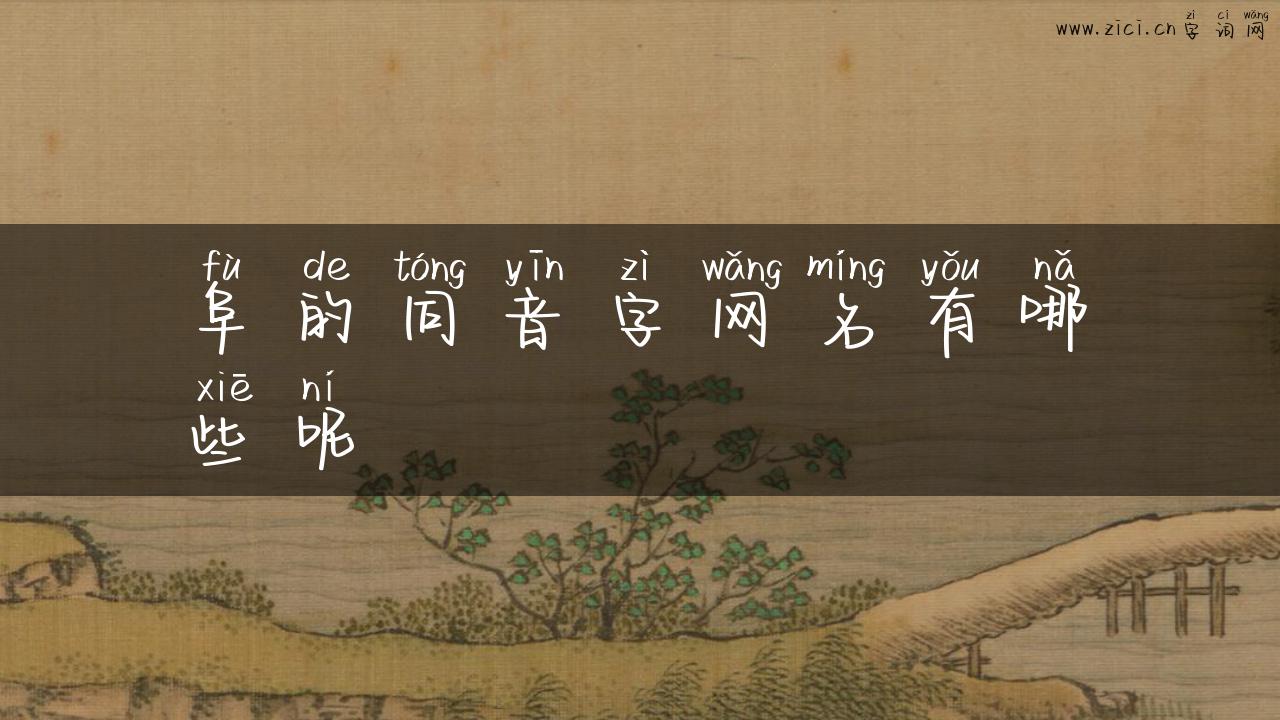 zì cí wǎng
www.zici.cn 字词网
fù de tóng yīn zì wǎng míng yǒu nǎ
阜的同音字网名有哪
xiē ní
些呢